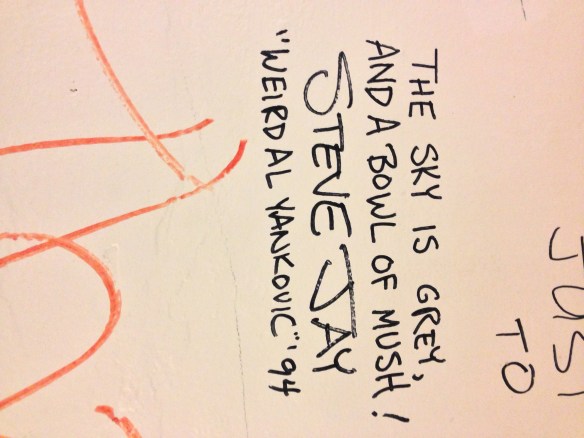 JUST
TO
THE SKY IS GREY,
AND A BOWL OF MUSH!
STEVE JAY
"WEIRD AL YANKOVIC" '94